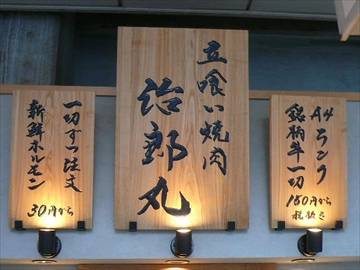 立喰い焼肉
治郎丸
A4ランク
銘柄牛一切
150円から
税抜き
一切ずつ注文
新鮮ホルモン
30円から